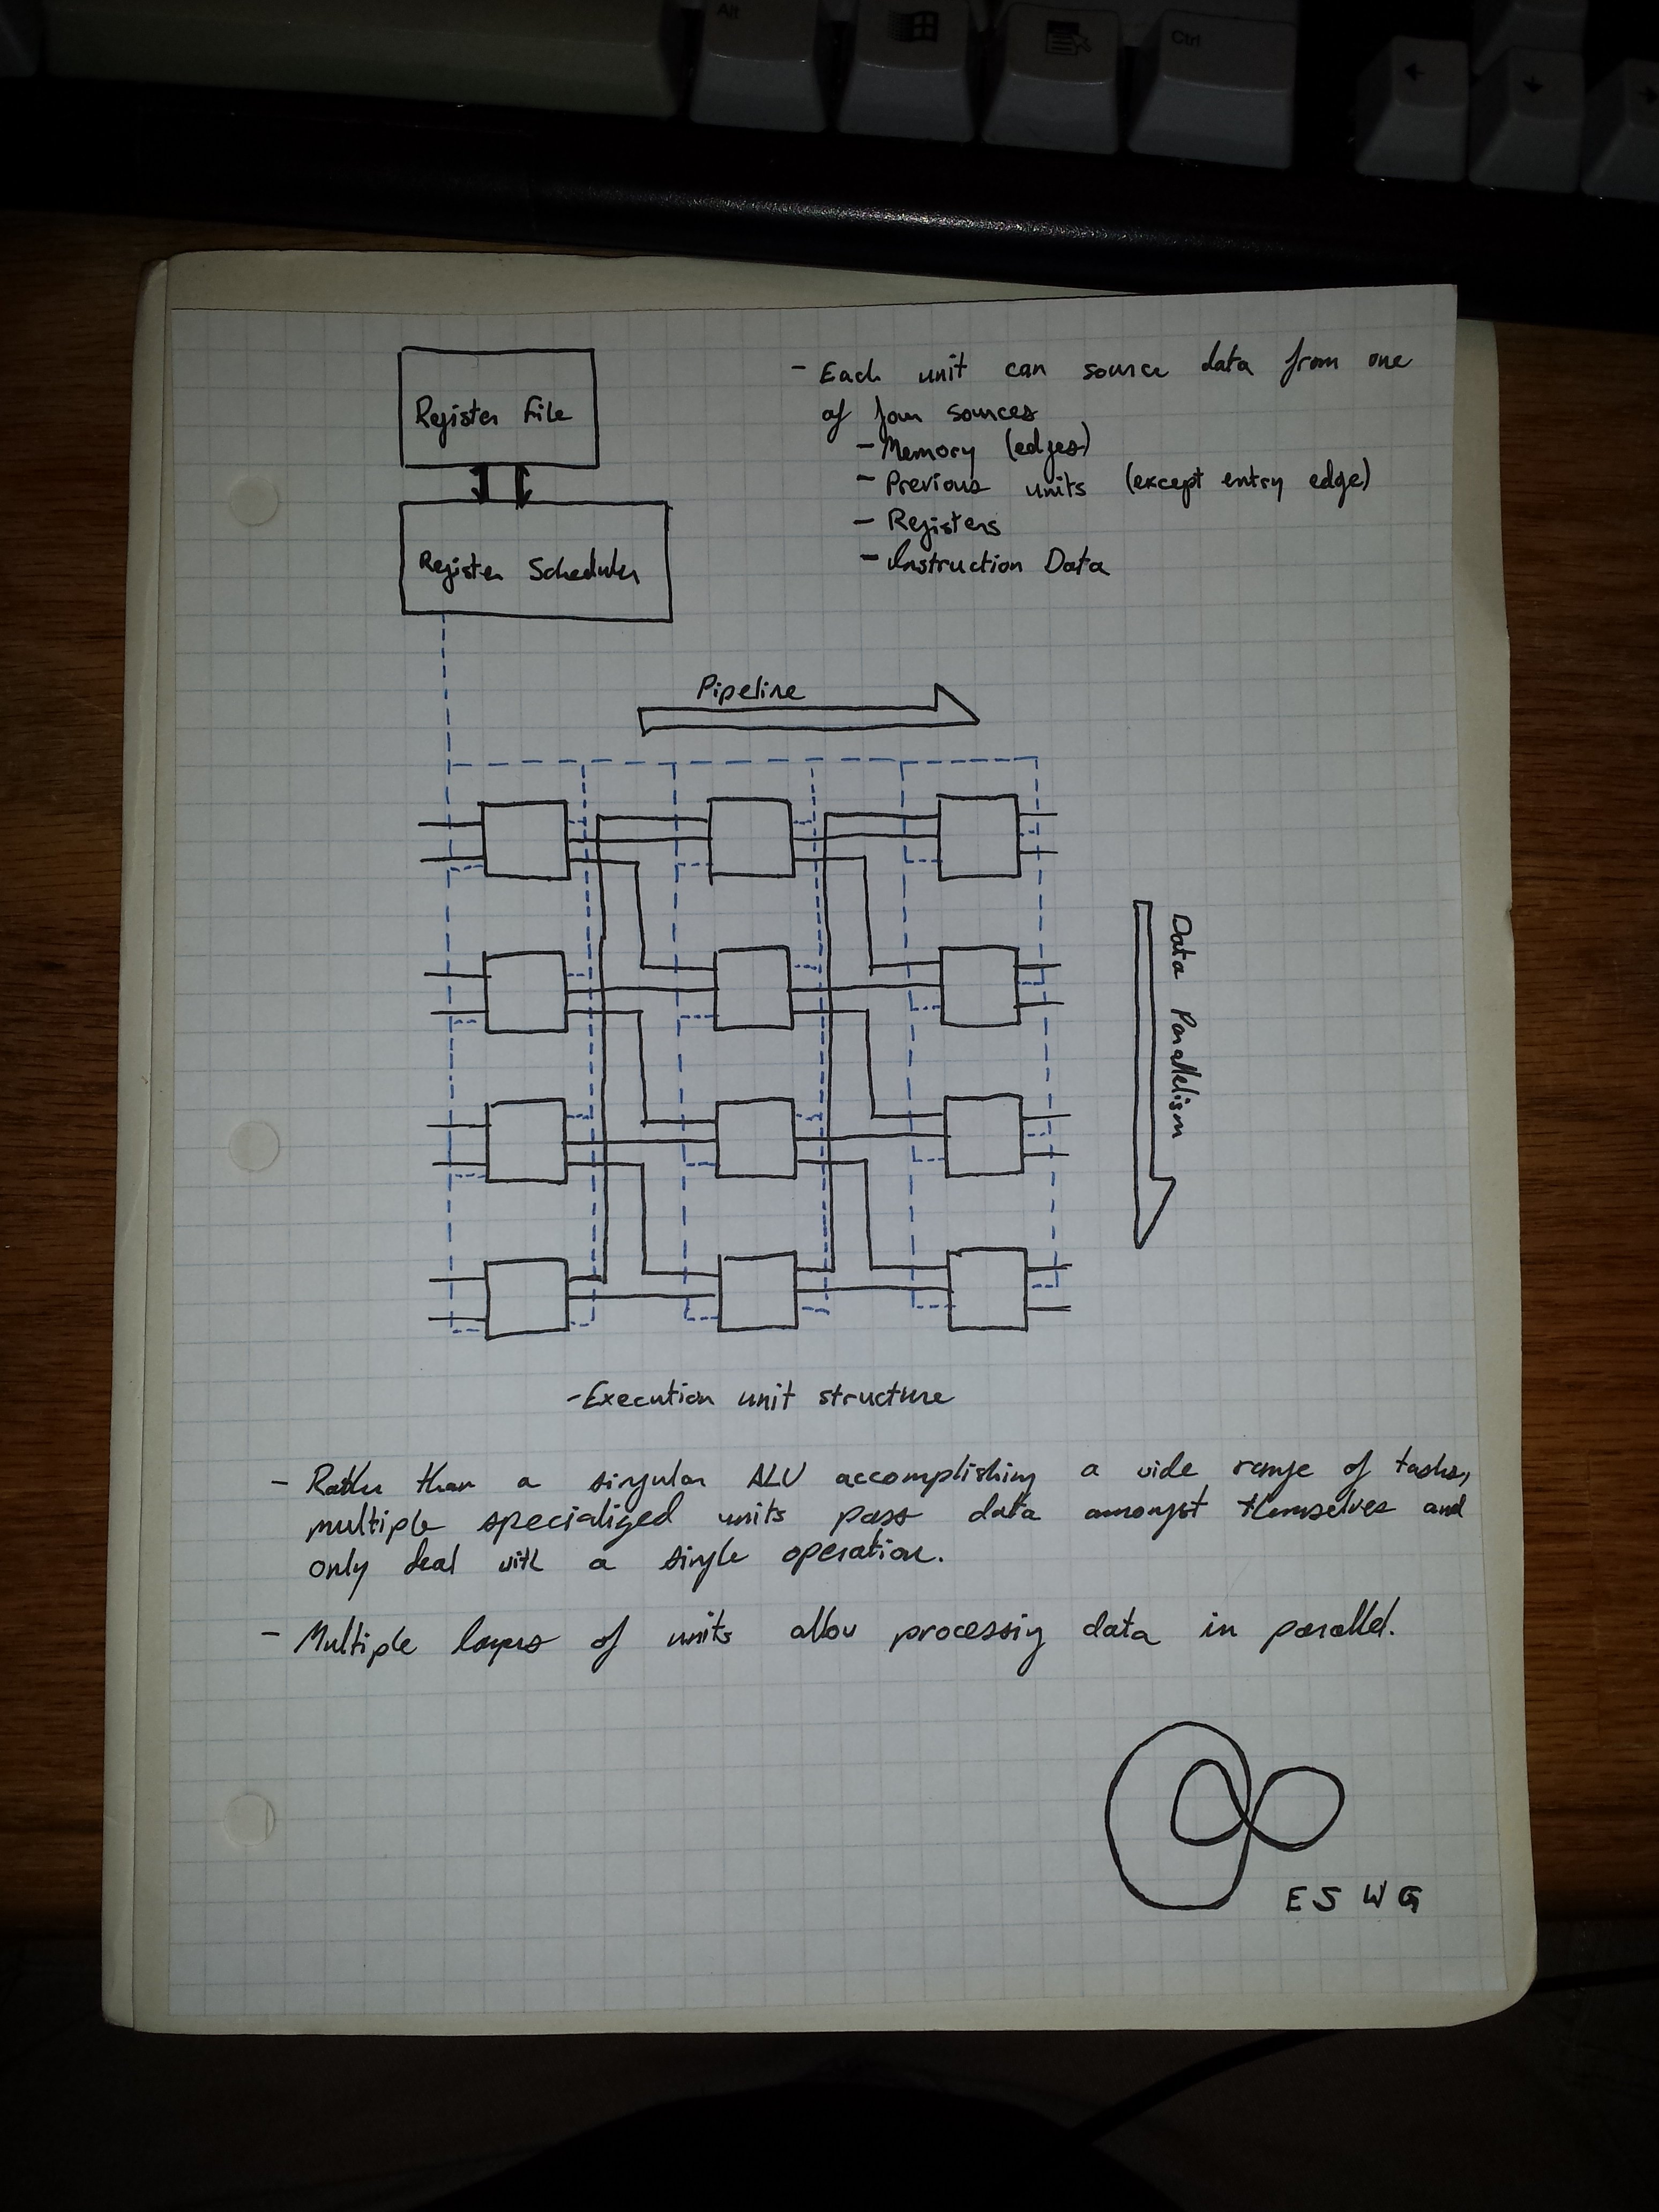 Alt
Ctrl
Register File
Register Scheduler
- Each unit can source data from one
of four sources
- Memory (edges)
- Previous units (except entry edge)
- Registers
- Instruction Data
Pipeline
Data Parallelism
- Execution unit structure
- Rather than a singular ALU accomplishing a wide range of tasks,
multiple specialized units pass data amongst themselves and
only deal with a single operation.
- Multiple layers of units allow processing data in parallel.
ESWG